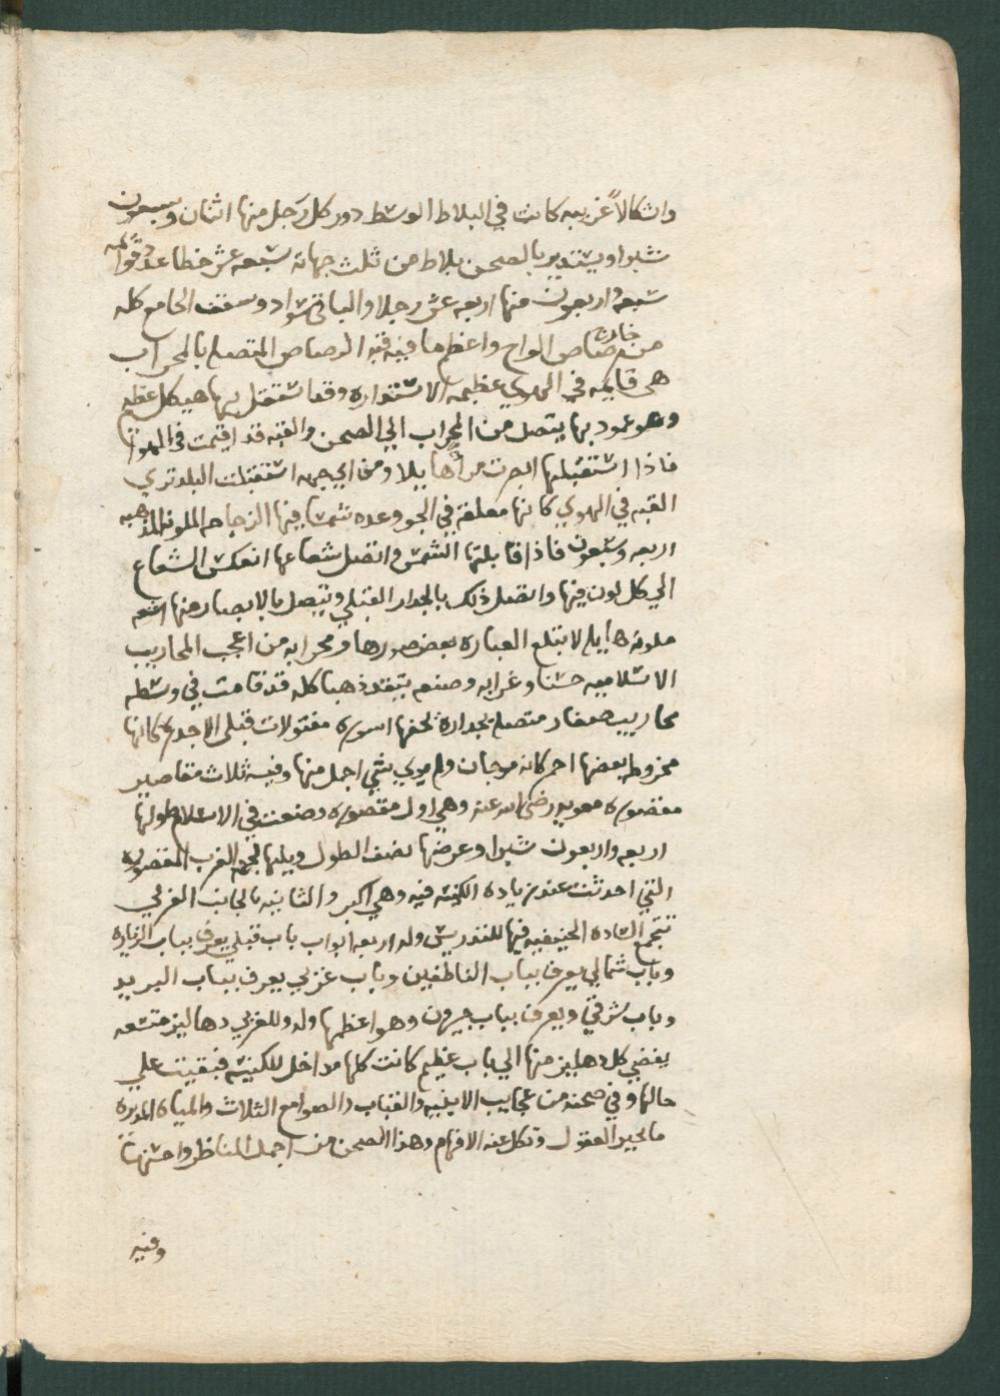 واشكالاً غريبه كانت في البلاط الوسط دور كل رجل منها اثنان وسبعون
شبرا ويستدير بالصحن بلاط من ثلث جهاته سبعه عشر خطا عدد قوائمه
سبعه واربعون منها اربعه عشر رجلا والباقي سواد وسقف الجامع كله
من خارج رصاص الواح واعظم ما فيه قبه الرصاص المتصله بالمحراب
هي قايمه في الهوي عظيمه الاستداره وقد استقل بها هيكل عظيم
وهو عمود بها يتصل من المحراب الي الصحن والقبه قد اقيمت في الهوا
فاذا استقبلتها ابصرت مرآها يلا ومن اي جهه استقبلت البلد تري
القبه في الهوي كانها معلقه في الجو وعده شمسا فيها الزجاجه الملونه المذهبه
اربعه وسبعون فاذا قابلتها الشمس واتصل شعاعها انعكس الشعاع
الي كل لون فيها واتصل ذلك بالجدار القبلي ويتصل بالابصار منها اشعه
ملونه هايله لا تبلغ العباره بعض صورها ومحرابه من اعجب المحاريب
الاسلاميه حسنا وغرابه وصنعه يتقد ذهبا كله قد قامت في وسطه
محاريب صغار متصله بجداره تحفها اسوره مفتولات فتل الاجدره كانها
مخروطه بعضها احمر كانه مرجان ولم يري شي اجمل منها وفيه ثلاث مقاصير
مقصوره معويه رضي الله عنه وهي اول مقصوره وضعت في الاسلام طولها
اربعه واربعون شبرا وعرضها نصف الطول ويليها لجهه الغرب المقصوره
التي احدثت عند زياده الكنيسه فيه وهي اكبر والثانيه بالجانب الغربي
تجتمع الساده الحنيفيه فيها للتدريس وله اربعه ابواب باب قبلي يعرف بباب الزياده
وباب شمالي يعرف بباب الناطفين وباب غربي يعرف بباب البريد
وباب شرقي ويعرف بباب جيرون وهو اعظمها وله وللغربي دهاليز متسعه
يفضي كل دهليز منها الي باب عظيم كانت كلها مداخل للكنيسه فبقيت علي
حالها وفي صحنه من عجايب الابنيه والقباب والصوامع الثلاث والمياه المديره
ما يحير العقول وتكل عنه الافهام وهذا الصحن من اجمل المناظر واحسنها
وفيه